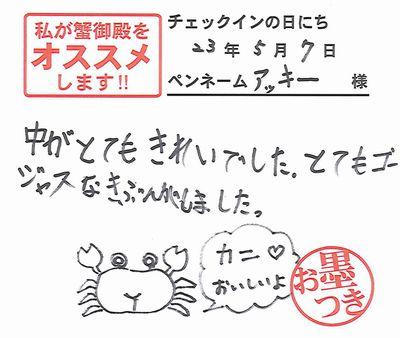 私が蟹御殿を
オススメ
します!!
チェックインの日にち
23年5月7日
ペンネーム アッキー 様
中がとてもきれいでした。とてもゴー
ジャスなきぶんがしました。
カニ♡
おいしいよ
お墨つき